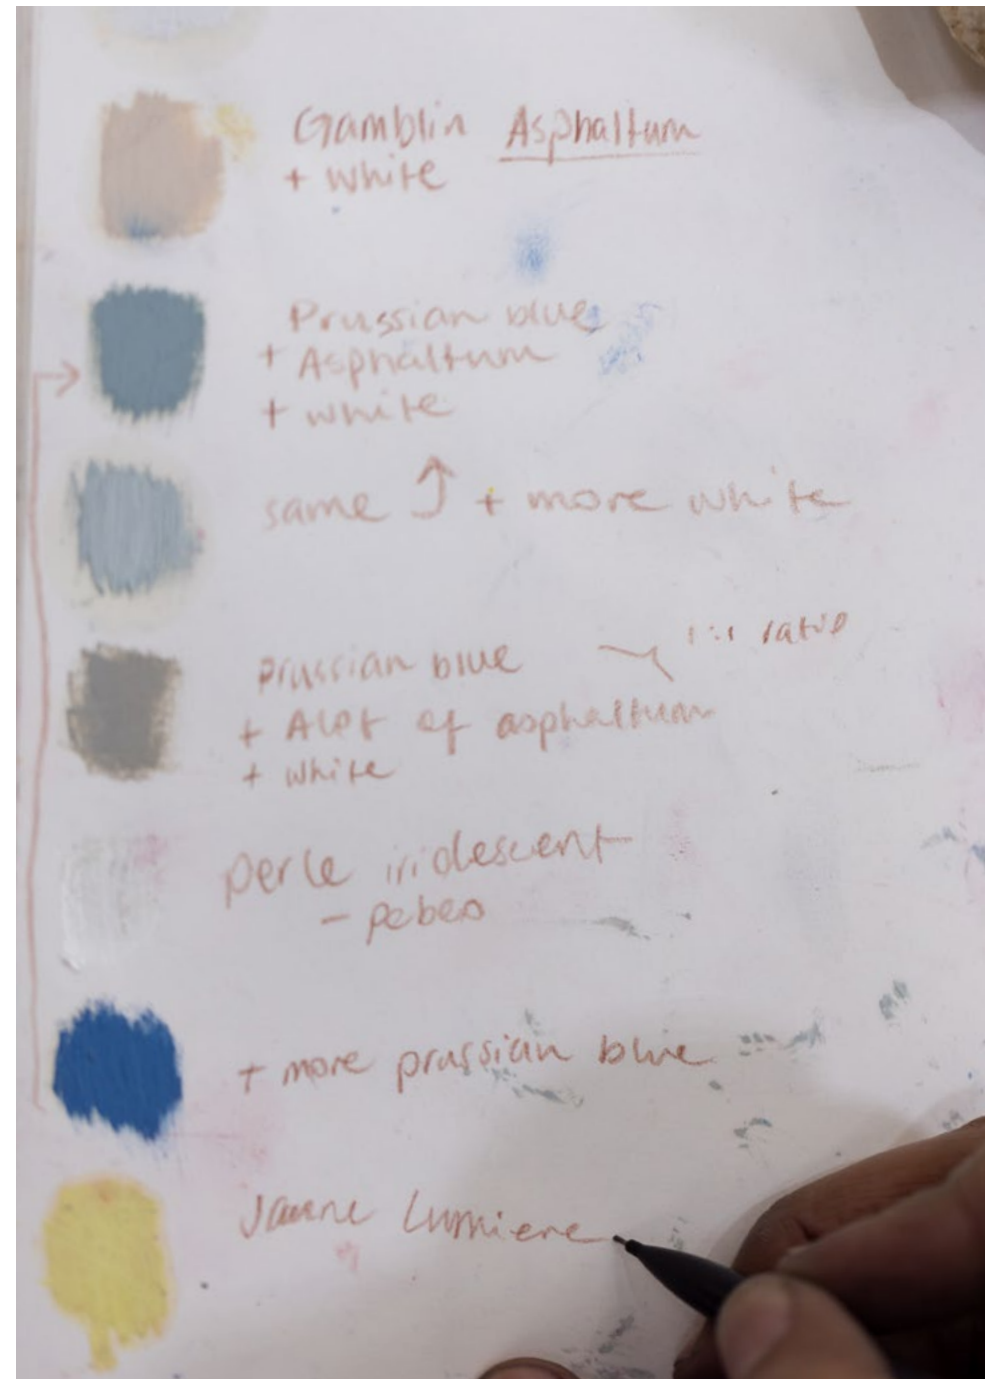 Gamblin Asphaltum
+ white
Prussian blue
+ Asphaltum
+ white
same ↑ + more white
Prussian blue
1:1 ratio
+ Alot of asphaltum
+ white
perle iridescent
- pebeo
+ more prussian blue
Jaune Lumiere